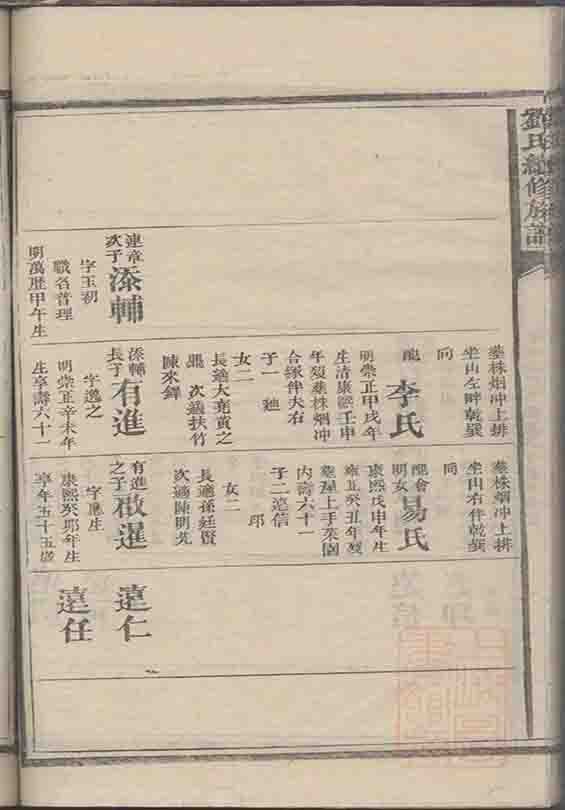 劉氏續修族譜
連章
次子
添輔
字玉初
職名普理
明萬歷甲午生
葬株烟冲上排
坐山左畔乾巽
向
配
李氏
明崇正甲戌年
生清康熙壬申
年歿葬株烟冲
合條伴夫右
子一
女二
長適大堯黃之
次適扶竹
陳來鐸
添輔
長子
有進
字逸之
明崇正辛未年
生享壽六十一
葬株烟冲上排
坐山右伴乾巽
向
配會
明女
易氏
康熙戊申年生
雍正癸丑年歿
葬屋上手菜園
內壽六十一
子二遠信
女二
長適孫廷賢
次適陳明先
有進
之子
啟暹
字應生
康熙癸卯年生
享年五十五歲
遠仁
遠任